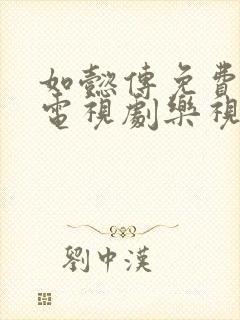 如懿傳免費
電視劇樂視
劉中漢